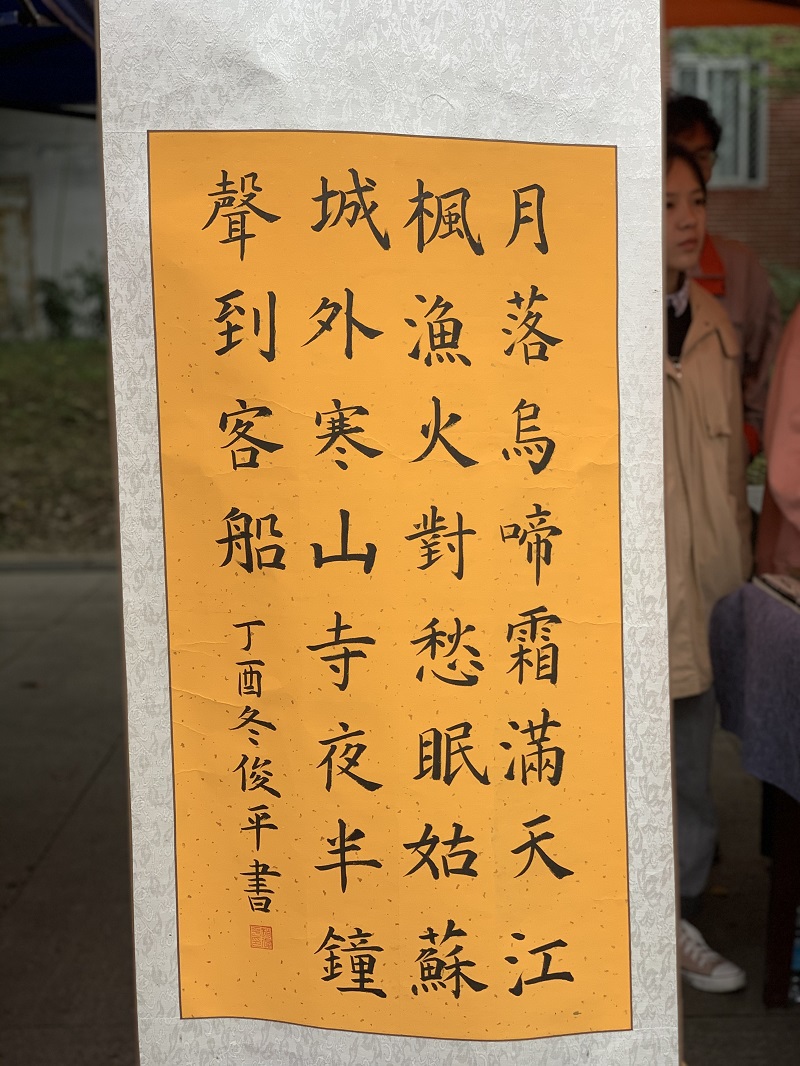 月落烏啼霜滿天江
楓漁火對愁眠姑蘇
城外寒山寺夜半鐘
聲到客船
丁酉冬俊平書